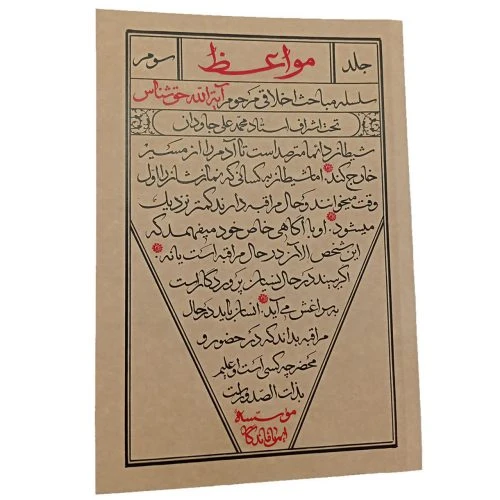 جلد مواعظ سوم
سلسله مباحث اخلاقی مرحوم آیةالله حق‌شناس
تحت اشراف استاد محمد علی جاودان
شیطان دائما مترصد است تا آدم را از مسیر
خارج کند. اما شیطان به کسانی که نمازشان را اول
وقت میخوانند و حال مراقبه دارند کمتر نزدیک
میشود. او با آگاهی خاص خود میفهمد که
این شخص الآن در حال مراقبه است یا نه.
اگر ببیند در حال نسیان پروردگار است
به سراغش می آید. انسان باید در حال
مراقبه بداند که در حضور و
محضر چه کسی است و علیم
بذات الصدور است
موسسه
ایمان ماندگار